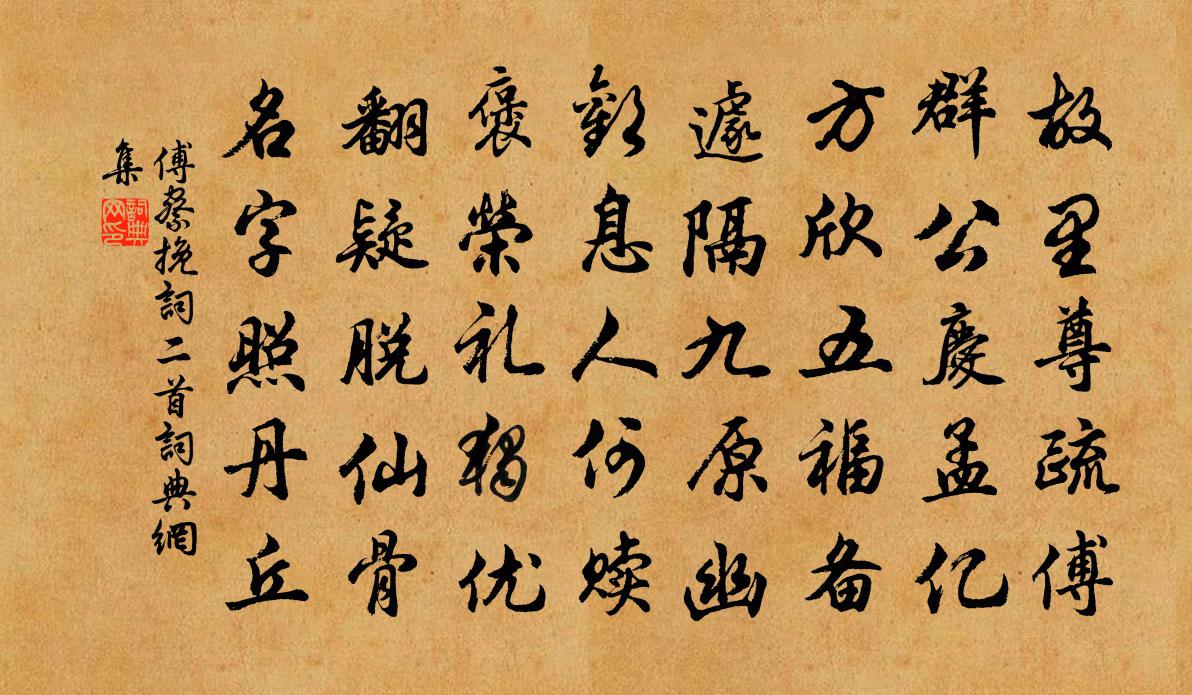 故里尊疏傅
群公慶孟亿
方欣五福备
遽隔九原幽
歎息人何赎
褒榮礼獨优
翻疑脱仙骨
名字照丹丘
傅察挽詞二首詞典網
集
詞典网印